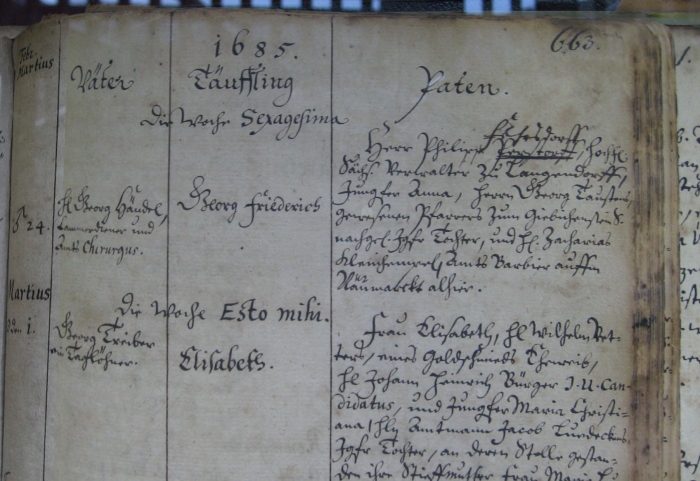 Febr.
Martius
1685.
663.
Väter
Täuffling
Paten.
Die Woche Sexagesima
♄ 24.
H. Georg Händel,
Cammerdiener und
Amts Chirurgus.
Georg Friederich
Herr Philipp Fehrsdorff, hochf.
Sächs. Verwalter zu Langendorff,
Jungfer Anna, Herrn Georg Taustens,
gewesenen Pfarrers zum Giebichenstein S.
nachgel. Jgfr Tochter, und H. Zacharias
Kleinhempel, Amts Barbier auffm
Näumarckt alhier.
Martius
Die Woche Esto mihi.
den 1.
Georg Treiber
ein Taglöhner.
Elisabeth.
Frau Elisabeth, H. Wilhelm Vet-
ters, eines Goldschmieds Eheweib,
H. Johann Heinrich Bürger J. U. Can-
didatus, und Jungfer Maria Christi-
ana, Hln Amtmann Jacob Luedeckens
Jgfr Tochter, an deren Stelle gestan-
den ihre Stieffmutter Frau Maria